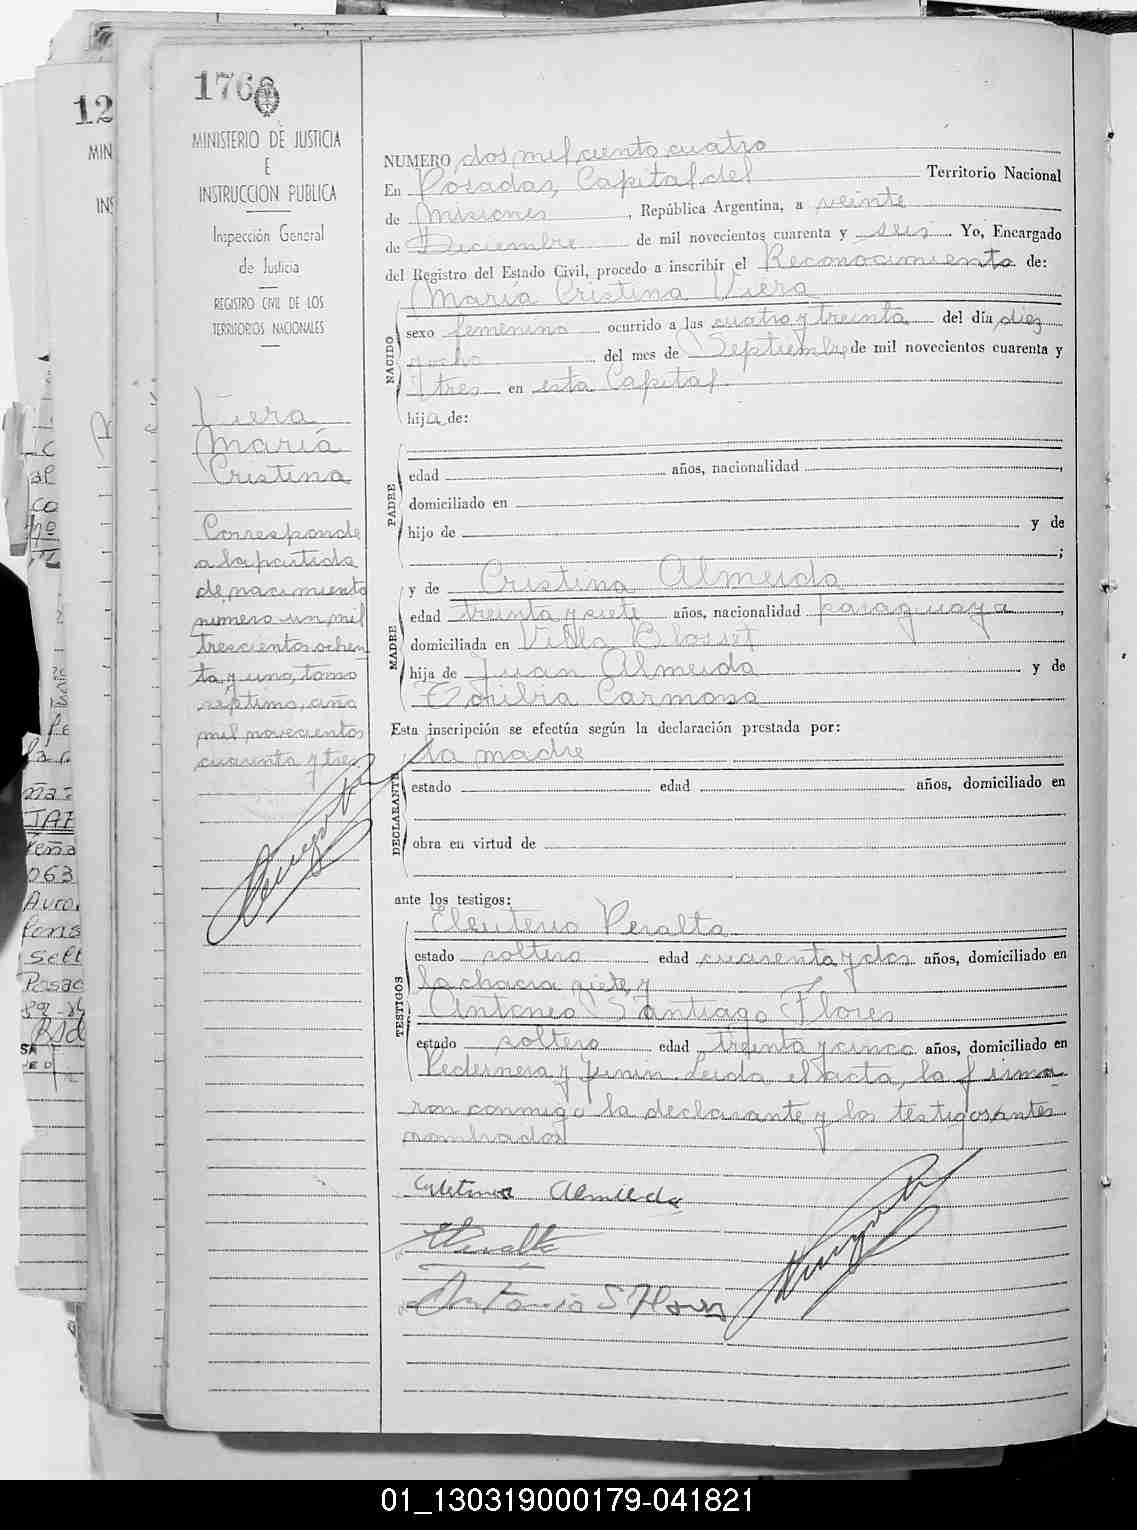 176
MINISTERIO DE JUSTICIA
E
INSTRUCCION PUBLICA
Inspección General
de Justicia
REGISTRO CIVIL DE LOS
TERRITORIOS NACIONALES
Viera
María
Cristina
Corresponde
a la partida
de nacimiento
numero un mil
trescientos ochen
ta y uno, tomo
séptimo, año
mil novecientos
cuarenta y tres
NUMERO dos mil ciento cuatro
En Posadas, Capital del Territorio Nacional
de Misiones, República Argentina, a veinte
de Diciembre de mil novecientos cuarenta y seis. Yo, Encargado
del Registro del Estado Civil, procedo a inscribir el Reconocimiento de:
NACIDO
María Cristina Viera
sexo femenino ocurrido a las cuatro y treinta del día diez
y ocho del mes de Septiembre de mil novecientos cuarenta y
tres en esta Capital.
hija de:
PADRE
edad años, nacionalidad ,
domiciliado en
hijo de y de
;
MADRE
y de Cristina Almeida
edad treinta y siete años, nacionalidad paraguaya,
domiciliada en Villa Blosset
hija de Juan Almeida y de
Carmona
Esta inscripción se efectúa según la declaración prestada por:
DECLARANTE
la madre
estado edad años, domiciliado en
obra en virtud de
ante los testigos:
TESTIGOS
Eleuterio Peralta
estado soltero edad cuarenta y dos años, domiciliado en
la chacra siete y
Antonio Santiago Flores
estado soltero edad treinta y cinco años, domiciliado en
Pedernera y Junin. Leida el acta, la firma
ron conmigo la declarante y los testigos antes
nombrados
Cristina Almeida
EPeralta
Antonio S Flores
12
MIN
INS
01_130319000179-041821